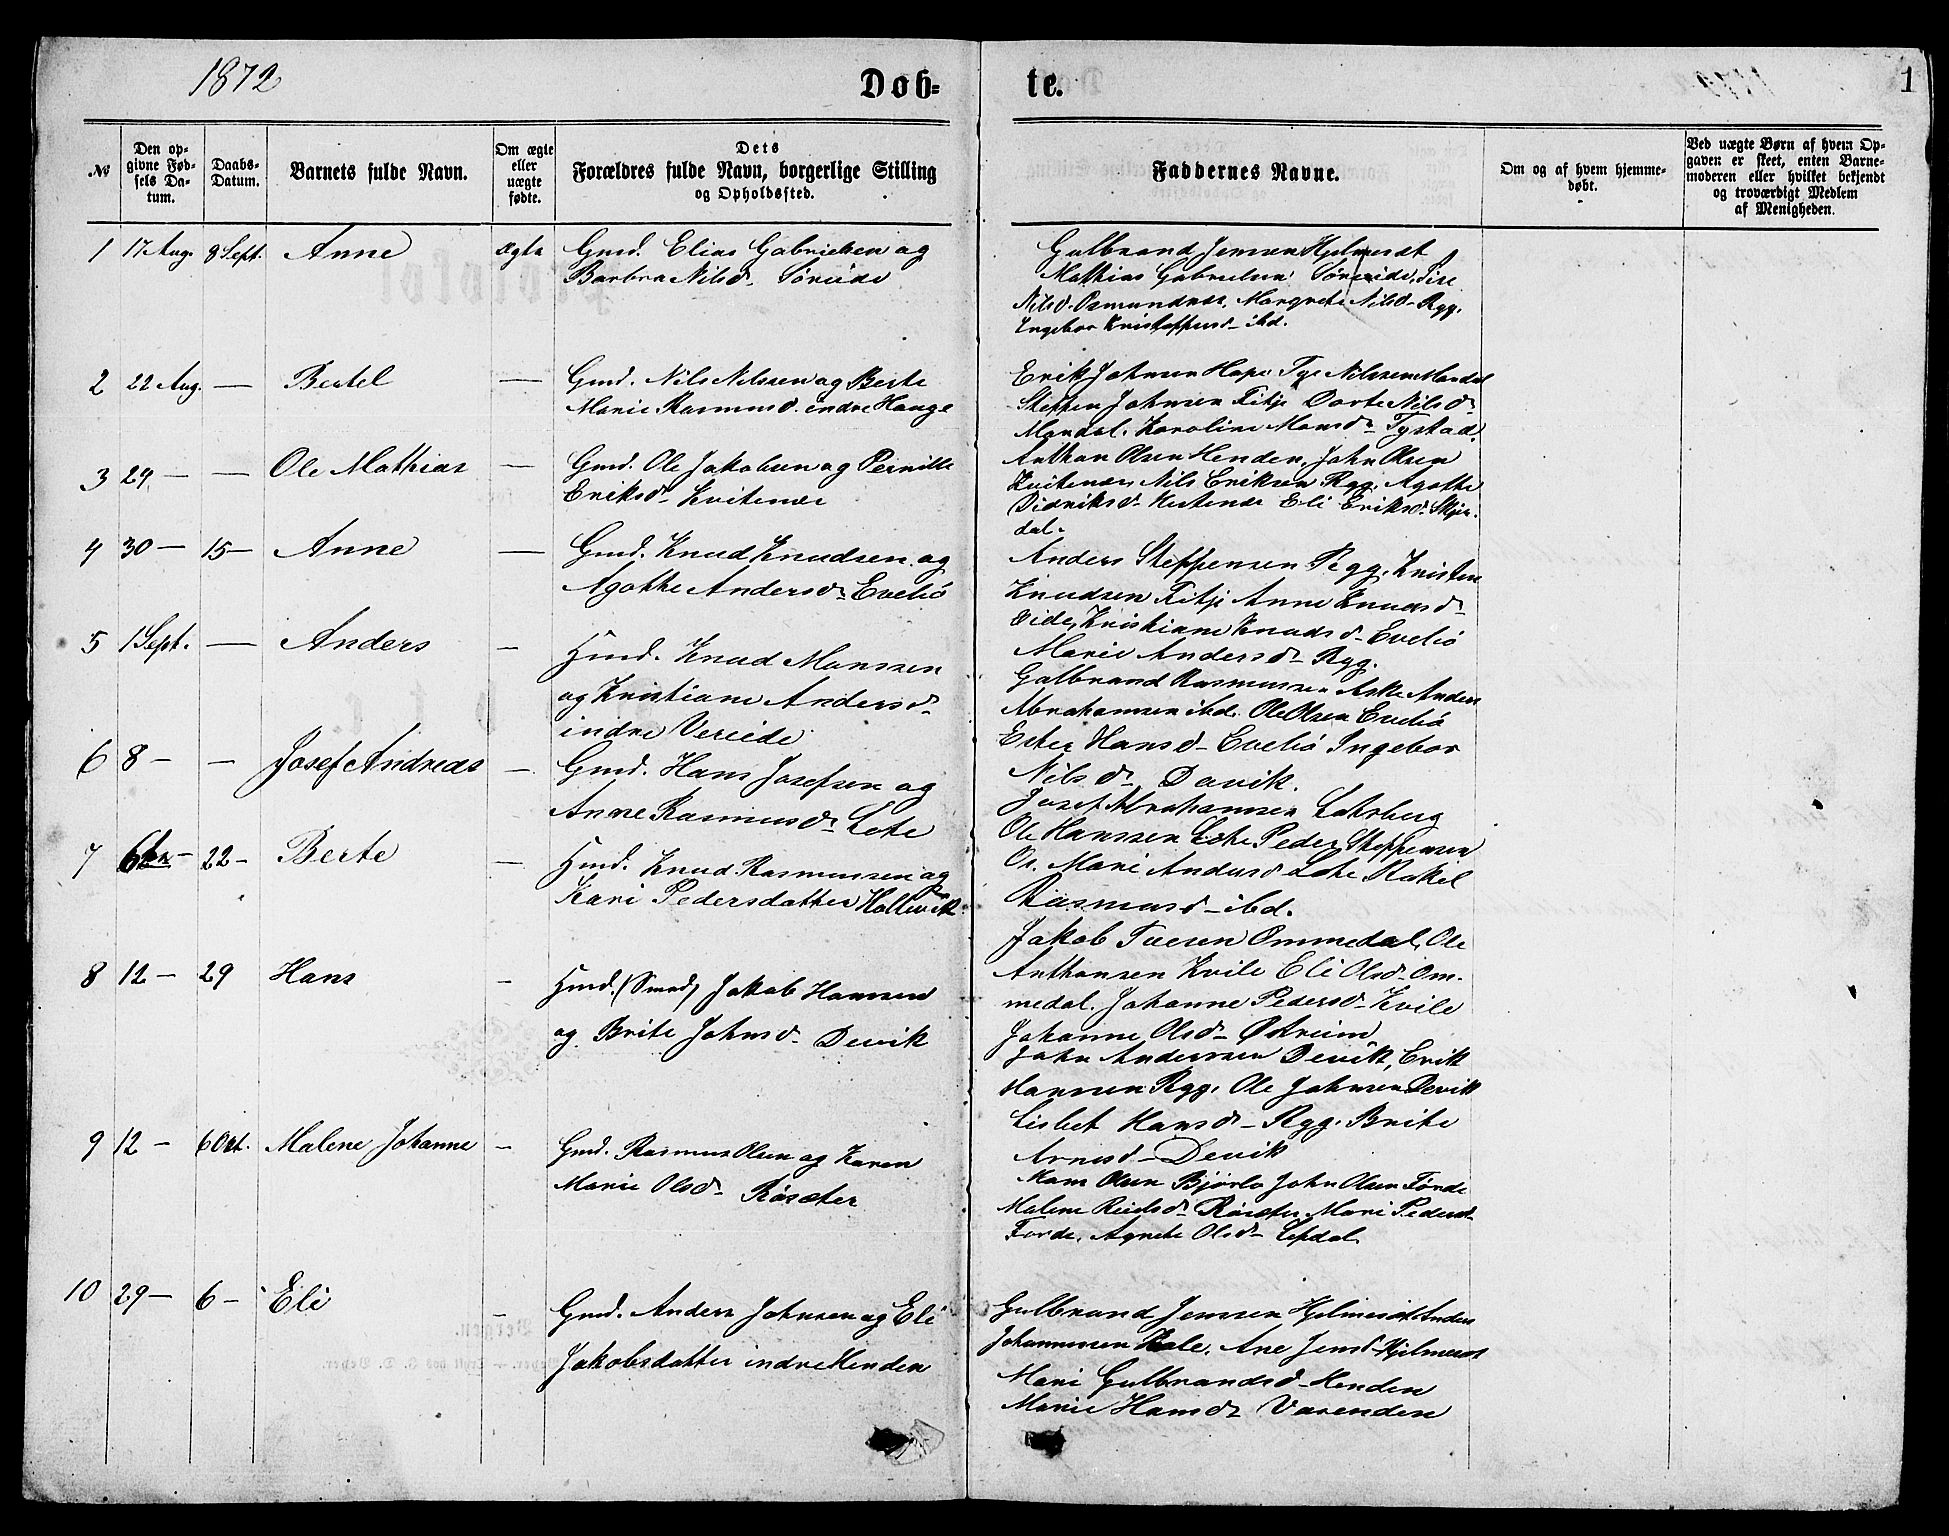 1872
Døb-
te.
1
№
Den op-
givne Fød-
sels Da-
tum.
Daabs-
Datum.
Barnets fulde Navn.
Om ægte
eller
uægte
fødte.
Dets
Forældres fulde Navn, borgerlige Stilling
og Opholdssted.
Faddernes Navne.
Om og af hvem hjemme-
døbt.
Ved uægte Børn af hvem Op-
gaven er skeet, enten Barne-
moderen eller hvilket bekjendt
og troværdigt Medlem
af Menigheden.
1 17 Aug. 8 Sept. Anne ægte Gmd. Elias Gabrielsen og
Barbra Nilsd. Søreide
Gulbrand Jensen Hjelmeset
Mathias Gabrielsen Søreide,
Nilsd. Osmundnes, Margrete Nilsd. Rygg,
Ingebor Kristoffersd. ibd.
2 22 Aug. — Bertel — Gmd. Nils Nilssen og Berte
Marie Rasmusd. indre Hauge
Erik Johnsen Hope Nilssen Mardal
Steffen Johnsen Fitje Dorte Nilsd.
Mardal. Karoline Monsd. Tystad.
3 29 — — Ole Mathias — Gmd. Ole Jakobsen og Pernille
Eriksd. Kvitenes
Anthon Olsen Henden, John Olsen
Kvitenes Nils Eriksen Rygg, Agathe
Didriksd. Eli Eriksd. Skjer-
dal.
4 30 — 15 — Anne — Gmd. Knud Knudsen og
Agathe Andersd. Evebø
Anders Steffensen Rygg. Kristen
Knudsen Fitje Anne Knudsd.
Eide, Kristiane Knudsd. Evebø
Marie Andersd. Rygg.
5 1 Sept. — Anders — Hmd. Knud Monssen
og Kristiane Andersd.
indre Vereide
Gulbrand Rasmussen Aske Anders
Abrahamsen ibd. Ole Olsen Evebø
Ester Hansd. Evebø Ingebor
Nilsd. Davik.
6 8 — — Josef Andreas — Gmd. Hans Josefsen og
Anne Rasmusd. Lote
Josef Abrahamsen
Ole Hanssen Lote Peder Steffensen
Os. Mari Andersd. Lote Rakel
Rasmusd. ibd.
7 6te — 22 — Berte — Hmd. Knud Rasmussen og
Kari Pedersdatter Hollevik
Jakob Ommedal, Ole
Anthonsen Kvile Eli Olsd. Om-
medal, Johanne Pedersd. Kvile
Johanne Olsd. Østreim
8 12 — 29 Hans — Hmd. (Smed) Jakob Hanssen
og Brite Johnsd. Devik
John Anderssen Devik, Erik
Hanssen Rygg, Ole Johnsen Devik
Lisbet Hansd. Rygg. Brite
Arnesd. Devik
9 12 — 6 Okt. Malene Johanne — Gmd. Rasmus Olsen og Karen
Marie Olsd. Røsæter
Mons Olsen Bjørlo John Olsen Førde
Malene Røsæter Mari Pedersd.
Førde, Agnete Olsd.
10 29 — 6 — Eli — Gmd. Anders Johnsen og Eli
Jakobsdatter indre Henden
Gulbrand Jenssen Hjelmeset Anders
Johannessen Kale, Ane Jensd. Hjelmeset
Mari Gulbrandsd. Henden
Marie Hansd. Varenden